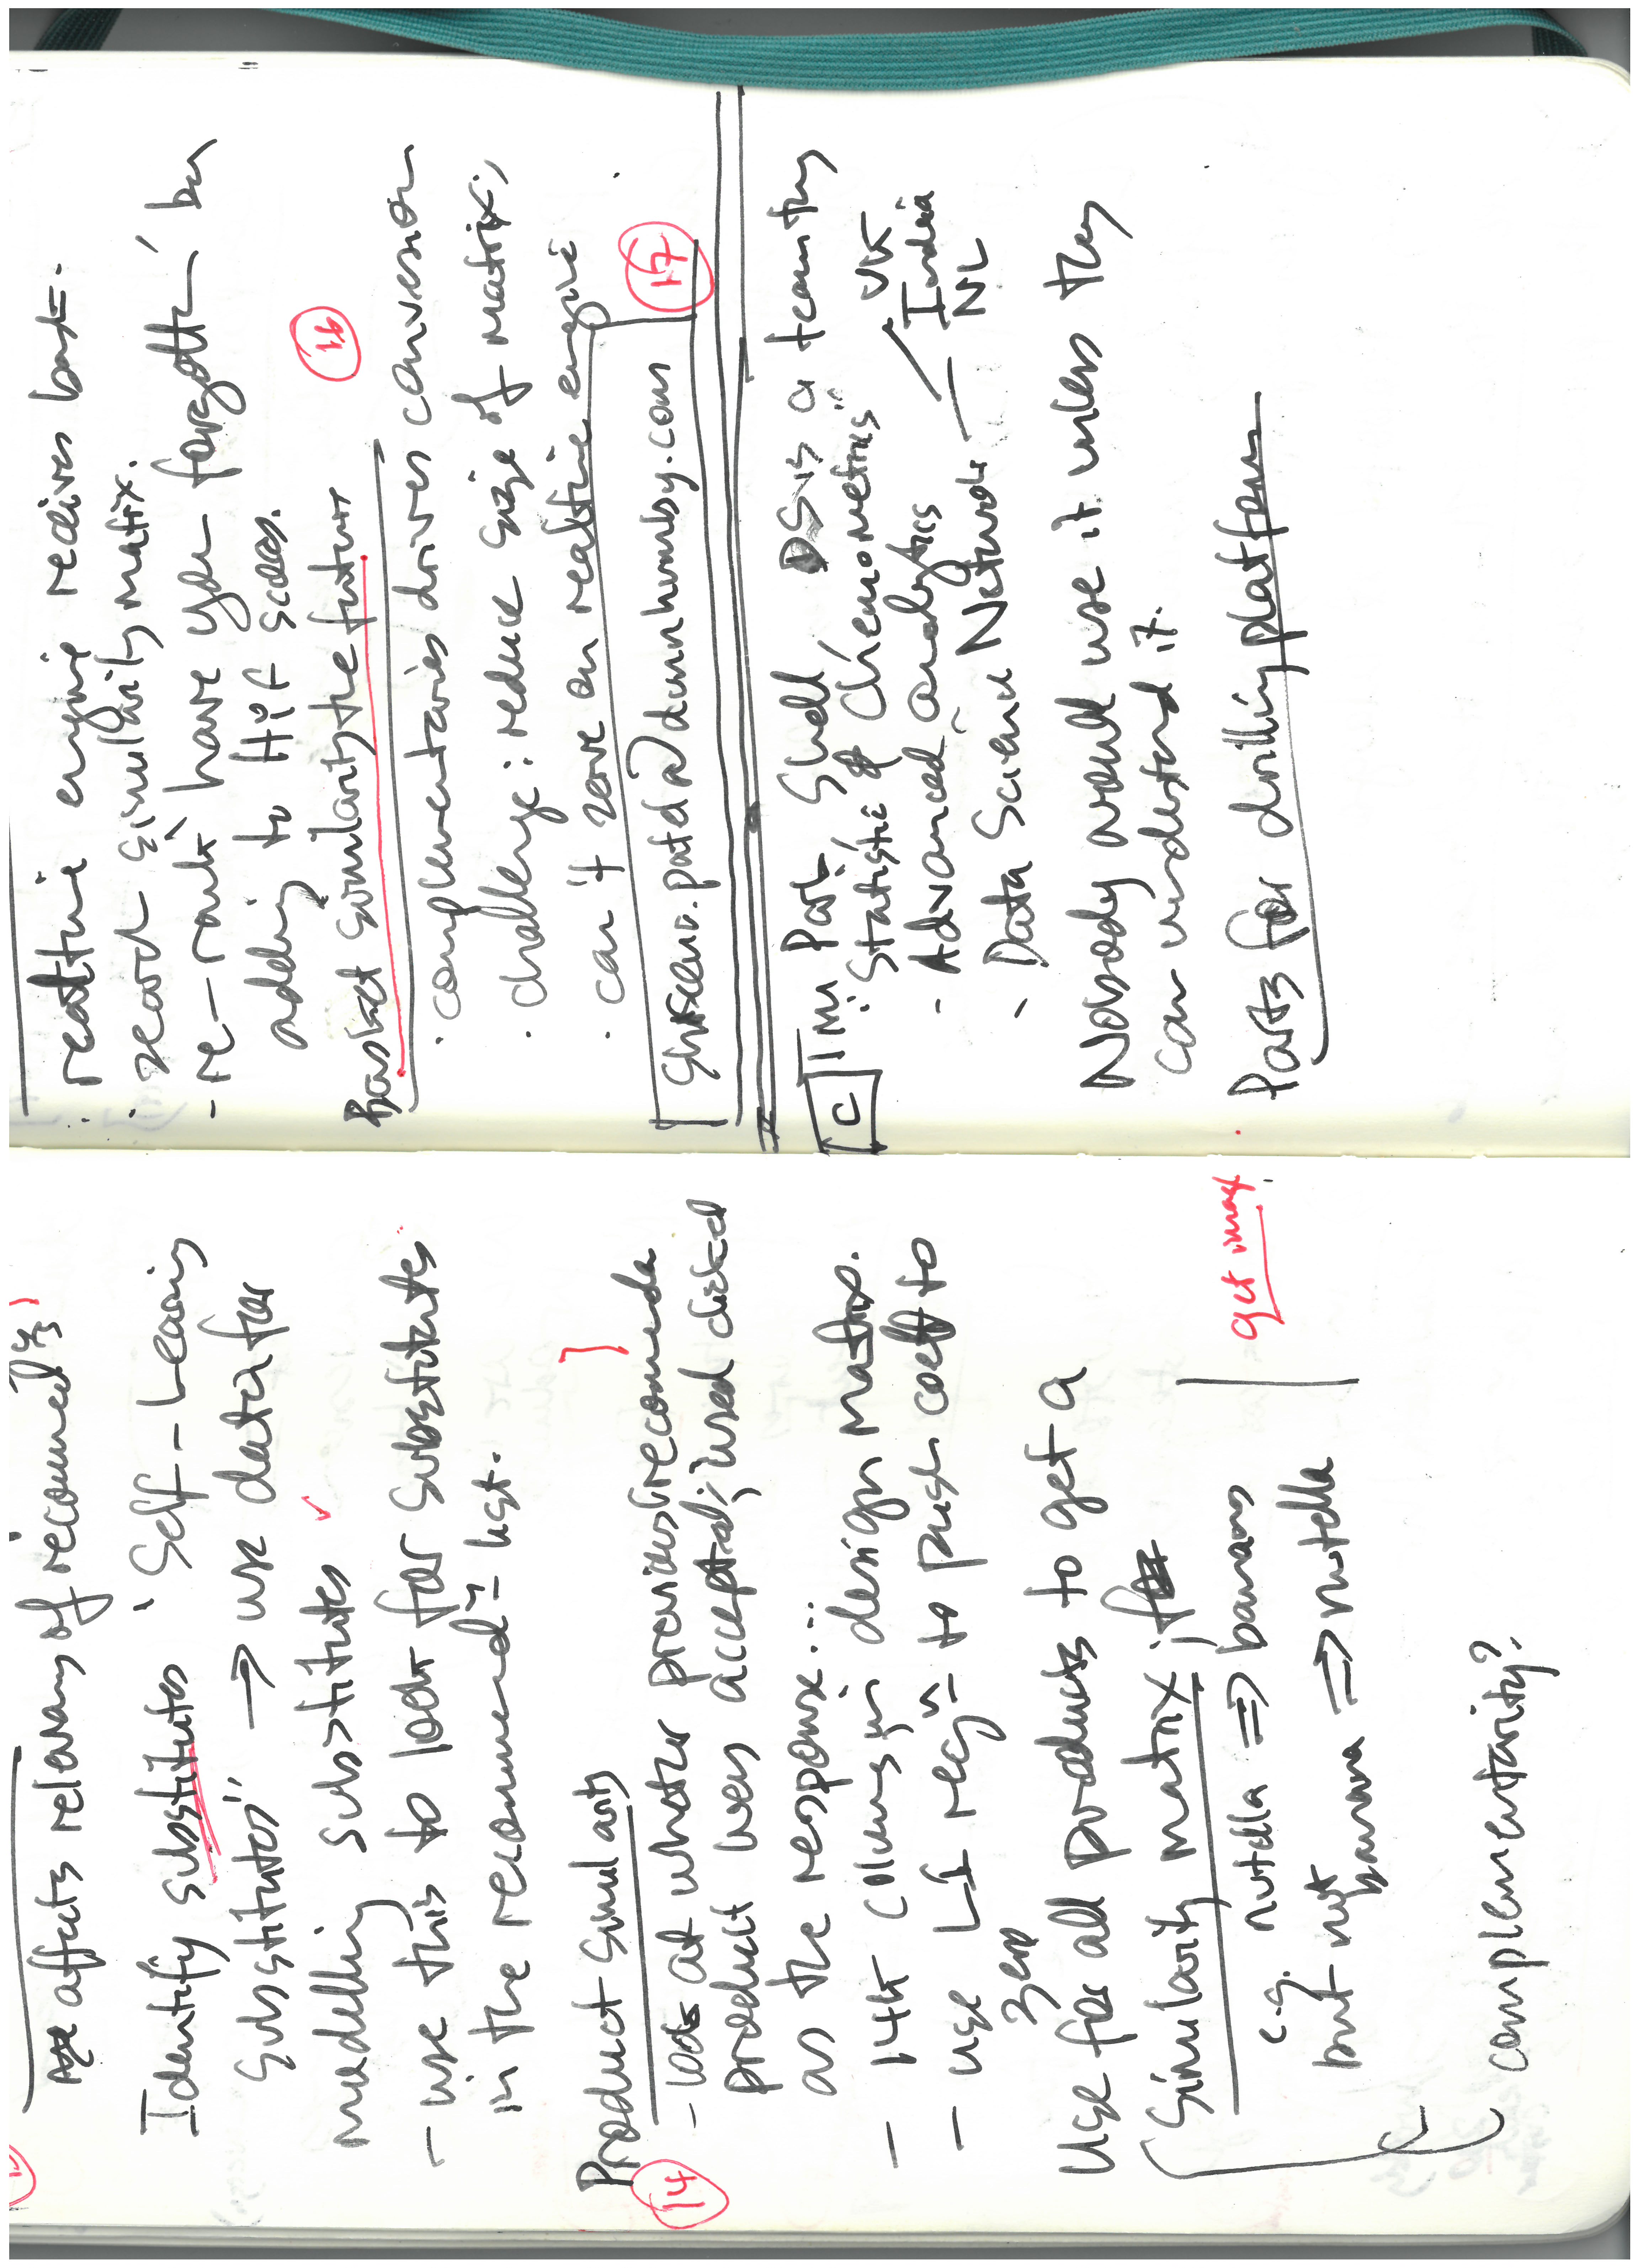 affects relevancy of recommend
Identify substitutes 'Self-Learning
Substitutes" → use data for
modelling substitutes
- use this to look for substitutes
in the recommend list.
Product similarity
14
- looks at whether previous recommenda
product were accepted; used clicked
as the response...
- 14k columns in design matrix.
- use L1 reg to push coeff to
zero
Use for all products to get a
Similarity matrix;
e.g. nutella ⇒ bananas
but not
banana ⇒ nutella
get image
complementarity?
: realtime engine receives bask.
: record similarity matrix.
- re-rank 'have you forgotten' by
adding to HYF scores.
Basket similarity the future
16
· complementaries drives conversion
· challenge: reduce size of matrix;
· can it serve on realtime engine
patel@dunnhumby.com
17
C Tim Park Shell DS is a team thing
: Statistic & Chemometrics UK
- Advanced analytics India
- Data Science Network — NL
Nobody would use it unless they
can understand it.
Parts for drilling platform